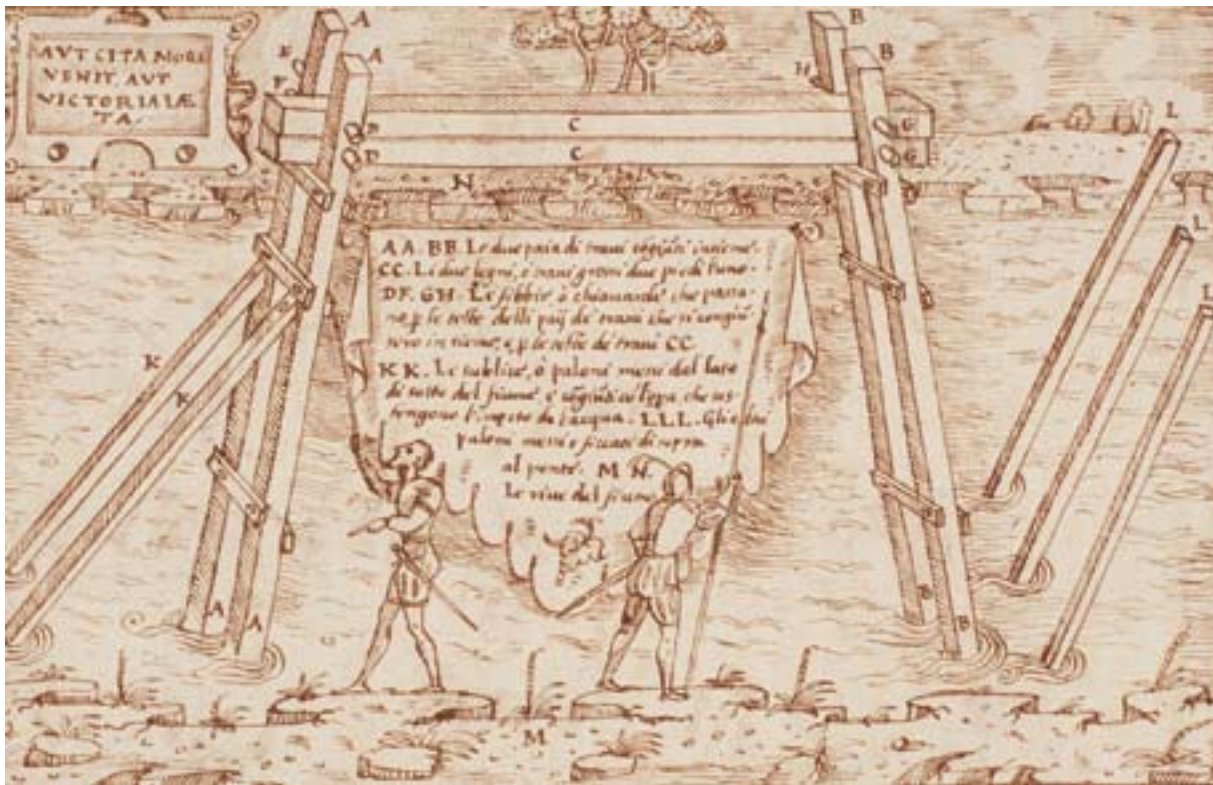 AVT CITA MORS
VENIT, AVT
VICTORIA LÆ
TA.
A
A
E
F
D
D
C
C
B
B
H
G
G
L
L
L
N
K
K
A A. B B. Le due paia di travi cõgiũti insieme.
CC. Li due legni, o travi grossi due piedi l'uno.
DF. GH. Le fibbie o chiavarde che passa-
no ꝑ le teste delli paij de travi che si congiũ
insieme, e ꝑ le teste de travi CC
KK. Le sublice, o paloni messi dal lato
di sotto del fiume, e cõgiũti che sos
tengono l'impeto de l'acqua. LLL. Gli altri
paloni messi e ficcati di sopra
al ponte. M N.
Le rive del fiume
A
A
B
B
M